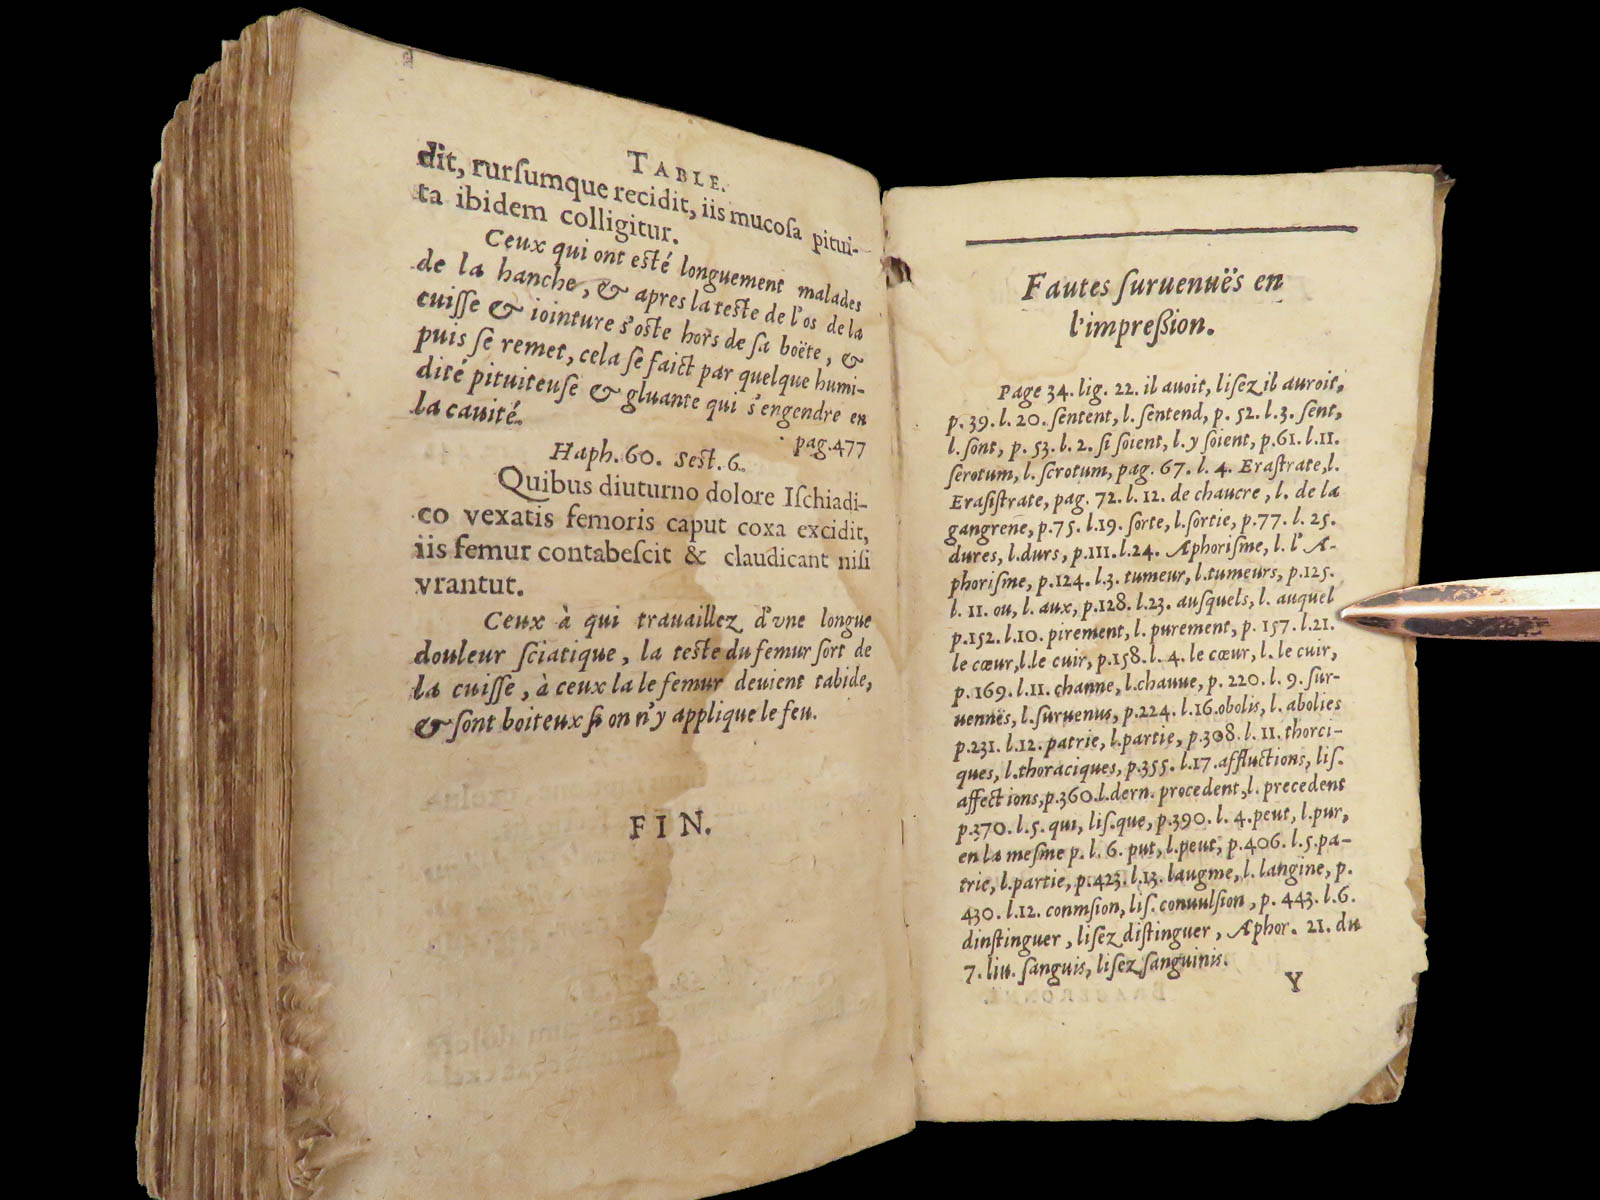 TABLE.
dit, rurſumque recidit, iis mucoſa pitui-
ta ibidem colligitur.
Ceux qui ont eſté longuement malades
de la hanche, & apres la teſte de l'os de la
cuiſſe & iointure s'oſte hors de ſa boëte, &
puis ſe remet, cela ſe faict par quelque humi-
dité pituiteuſe & gluante qui s'engendre en
la cauité.
pag.477
Haph. 60. Sect. 6.
Quibus diuturno dolore Iſchiadi-
co vexatis femoris caput coxa excidit,
iis femur contabeſcit & claudicant niſi
vrantut.
Ceux à qui trauaillez d'vne longue
douleur ſciatique, la teſte du femur ſort de
la cuiſſe, à ceux la le femur deuient tabide,
& ſont boiteux ſi on n'y applique le feu.
FIN.
Fautes ſuruenuës en
l'impreßion.
Page 34. lig. 22. il auoit, liſez il auroit,
p. 39. l. 20. ſentent, l. ſentend, p. 52. l. 3. ſent,
l. ſont, p. 53. l. 2. ſi ſoient, l. y ſoient, p. 61. l. 11.
ſerotum, l. ſcrotum, pag. 67. l. 4. Eraſtrate, l.
Eraſiſtrate, pag. 72. l. 12. de chaucre, l. de la
gangrene, p. 75. l. 19. ſorte, l. ſortie, p. 77. l. 25.
dures, l. durs, p. 111. l. 24. Æphoriſme, l. l'Æ-
phoriſme, p. 124. l. 3. tumeur, l. tumeurs, p. 125.
l. 11. ou, l. aux, p. 128. l. 23. auſquels, l. auquel
p. 152. l. 10. pirement, l. purement, p. 157. l. 21.
le cœur, l. le cuir, p. 158. l. 4. le cœur, l. le cuir,
p. 169. l. 11. channe, l. chauue, p. 220. l. 9. ſur-
uennës, l. ſuruenus, p. 224. l. 16. obolis, l. abolies
p. 231. l. 12. patrie, l. partie, p. 308. l. 11. thorci-
ques, l. thoraciques, p. 355. l. 17. affluctions, liſ.
affections, p. 360. l. dern. procedent, l. precedent
p. 370. l. 5. qui, liſ. que, p. 390. l. 4. peut, l. pur,
en la meſme p. l. 6. put, l. peut, p. 406. l. 5. pa-
trie, l. partie, p. 423. l. 13. laugme, l. langine, p.
430. l. 12. conmſion, liſ. conuulſion, p. 443. l. 6.
dinſtinguer, liſez diſtinguer, Æphor. 21. du
7. liu. ſanguis, liſez ſanguinis.
Y